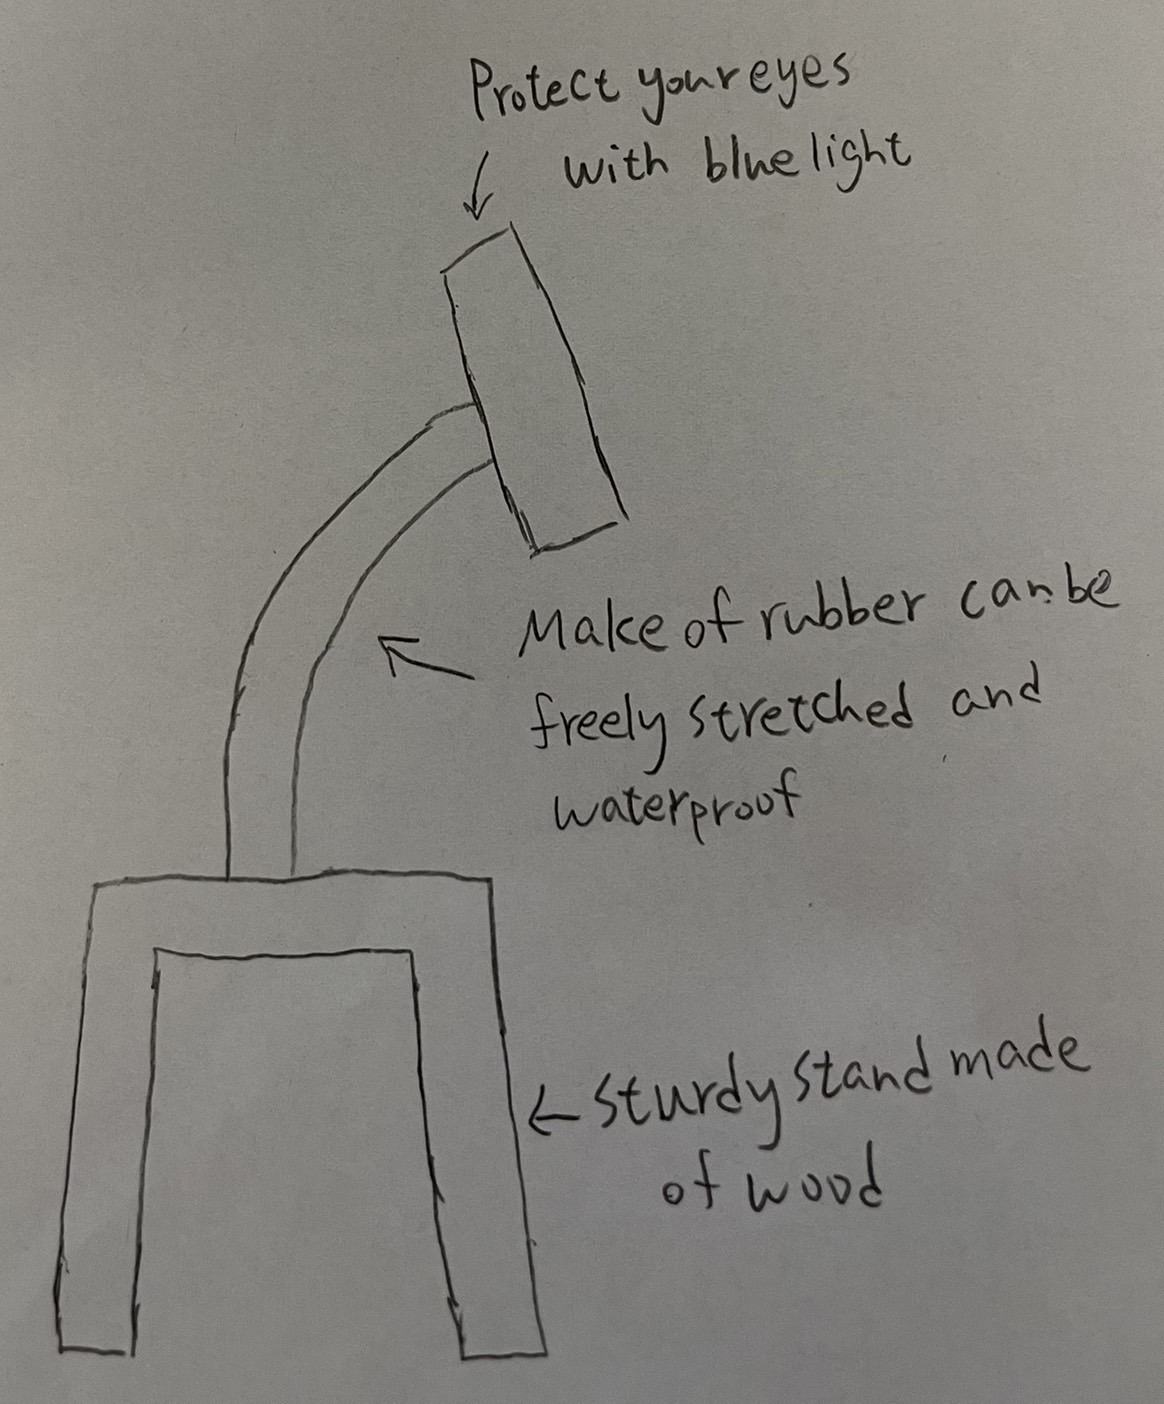 Protect your eyes
with blue light
Make of rubber can be
freely stretched and
waterproof
sturdy stand made
of wood